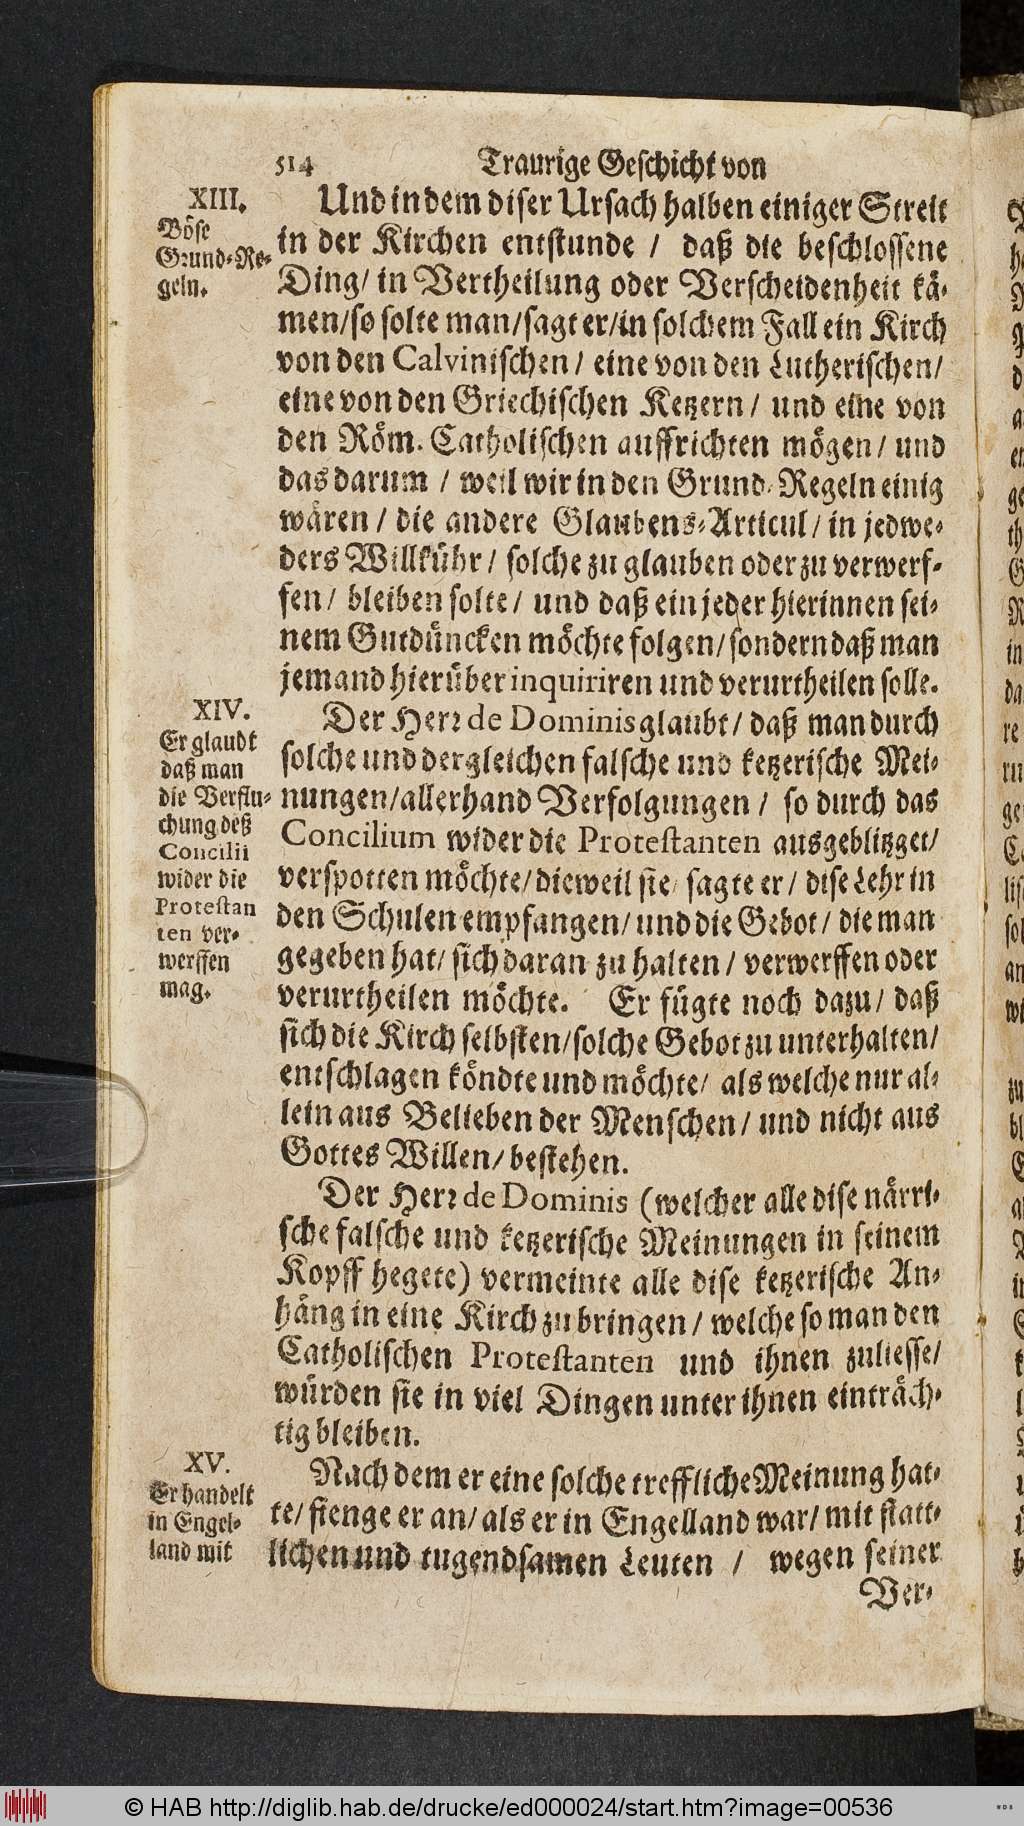 514 Traurige Geschicht von
XIII.
Böse
Grund-Re-
geln.
Und indem diser Ursach halben einiger Streit
in der Kirchen entstunde / daß die beschlossene
Ding/ in Vertheilung oder Verscheidenheit kä-
men/so solte man/sagt er/in solchem Fall ein Kirch
von den Calvinischen / eine von den Lutherischen/
eine von den Griechischen Ketzern / und eine von
den Röm. Catholischen auffrichten mögen / und
das darum / weil wir in den Grund-Regeln einig
wären / die andere Glaubens-Articul / in jedwe-
ders Willkühr / solche zu glauben oder zu verwerf-
fen / bleiben solte / und daß ein jeder hierinnen sei-
nem Gutdüncken möchte folgen/sondern daß man
jemand hierüber inquiriren und verurtheilen solle.
XIV.
Er glaubt
daß man
die Verflu-
chung deß
Concilii
wider die
Protestan
ten ver-
werffen
mag.
Der Herr de Dominis glaubt / daß man durch
solche und dergleichen falsche und ketzerische Mei-
nungen/allerhand Verfolgungen / so durch das
Concilium wider die Protestanten ausgeblitzget/
verspotten möchte/dieweil sie/ sagte er / dise Lehr in
den Schulen empfangen/ und die Gebot / die man
gegeben hat/ sich daran zu halten / verwerffen oder
verurtheilen möchte. Er fügte noch dazu / daß
sich die Kirch selbsten/solche Gebot zu unterhalten/
entschlagen köndte und möchte/ als welche nur al-
lein aus Belieben der Menschen / und nicht aus
Gottes Willen/ bestehen.
Der Herr de Dominis (welcher alle dise närri-
sche falsche und ketzerische Meinungen in seinem
Kopff hegete) vermeinte alle dise ketzerische An-
häng in eine Kirch zu bringen / welche so man den
Catholischen Protestanten und ihnen zuliesse/
würden sie in viel Dingen unter ihnen einträch-
tig bleiben.
XV.
Er handelt
in Engel-
land mit
Nach dem er eine solche treffliche Meinung hat-
te/ fienge er an/ als er in Engelland war/ mit statt-
lichen und tugendsamen Leuten / wegen seiner
Ver-
© HAB http://diglib.hab.de/drucke/ed000024/start.htm?image=00536